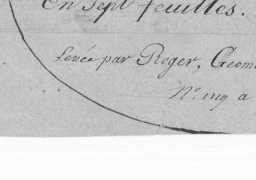 En sept feuilles.
Levée par Roger, Geom